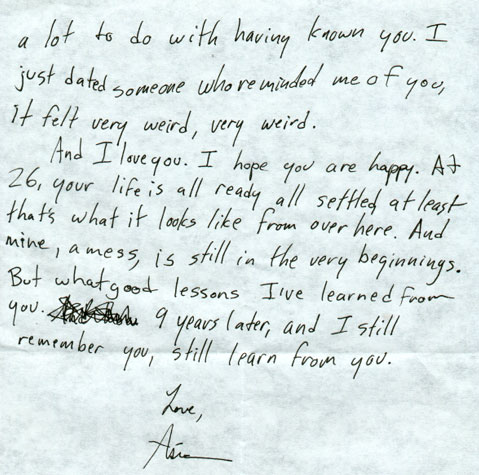 a lot to do with having known you. I
just dated someone who reminded me of you,
it felt very weird, very weird.
And I love you. I hope you are happy. At
26, your life is all ready all settled at least
that's what it looks like from over here. And
mine, a mess, is still in the very beginnings.
But what good lessons I've learned from
you. 9 years later, and I still
remember you, still learn from you.
Love,
Asia